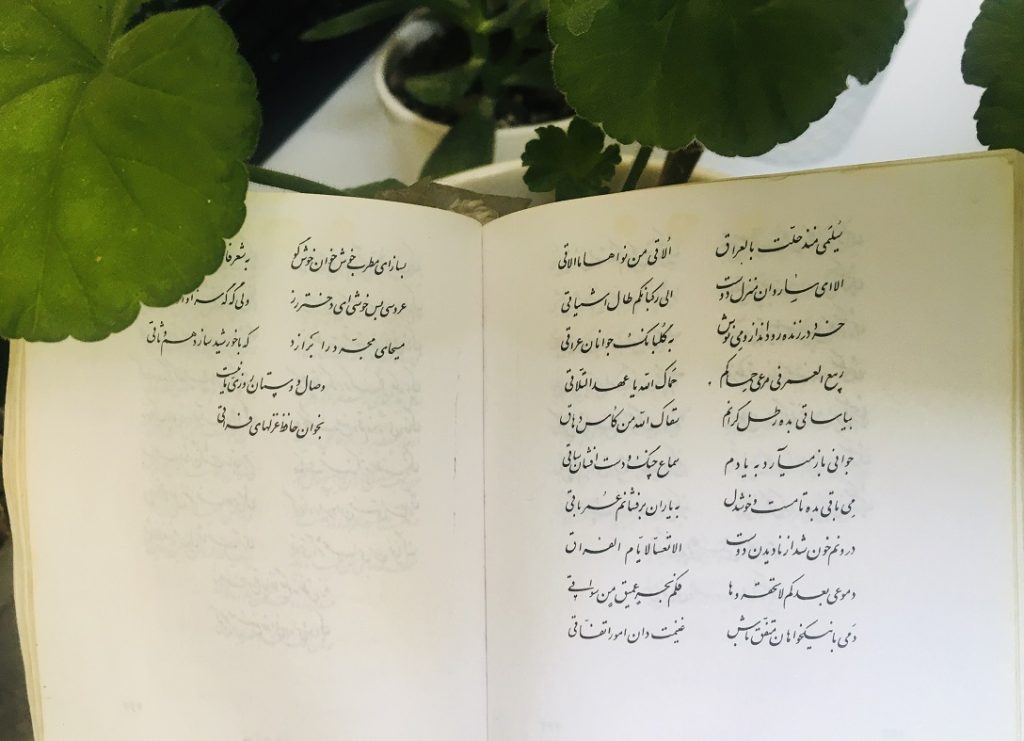 سُلَیمی منذ حلّت بالعراق اُلاقی من نواها ما الاقی
الا ای ساروان منزل دوست الی رکبانکم طال اشتیاقی
خرد در زنده رود انداز و می نوش به گلبانگ جوانان عراقی
ربیع العمر فی مرعی حماکم حماک الله یا عهد التلاقی
بیا ساقی بده رطل گرانم سقاک الله من کاس دهاق
جوانی باز می‌آرد به یادم سماع چنگ و دست افشان ساقی
می باقی بده تا مست و خوشدل به یاران برفشانم عمر باقی
درونم خون شد از نادیدن دوست الا تعسّا لایّام الفراق
دموعی بعدکم لا تحقروها فکم بحر عمیق من سواقی
دمی با نیکخواهان متفّق باش غنیمت دان امور اتفاقی
بساز ای مطرب خوش خوان خوش گو به شعر
عروسی بس خوشی ای دختر رز ولی گه گه
مسیحای مجرّد را برازد که با خورشید سازد هم وثاقی
وصال دوستان روزی ما نیست
بخوان حافظ غزلهای فراقی